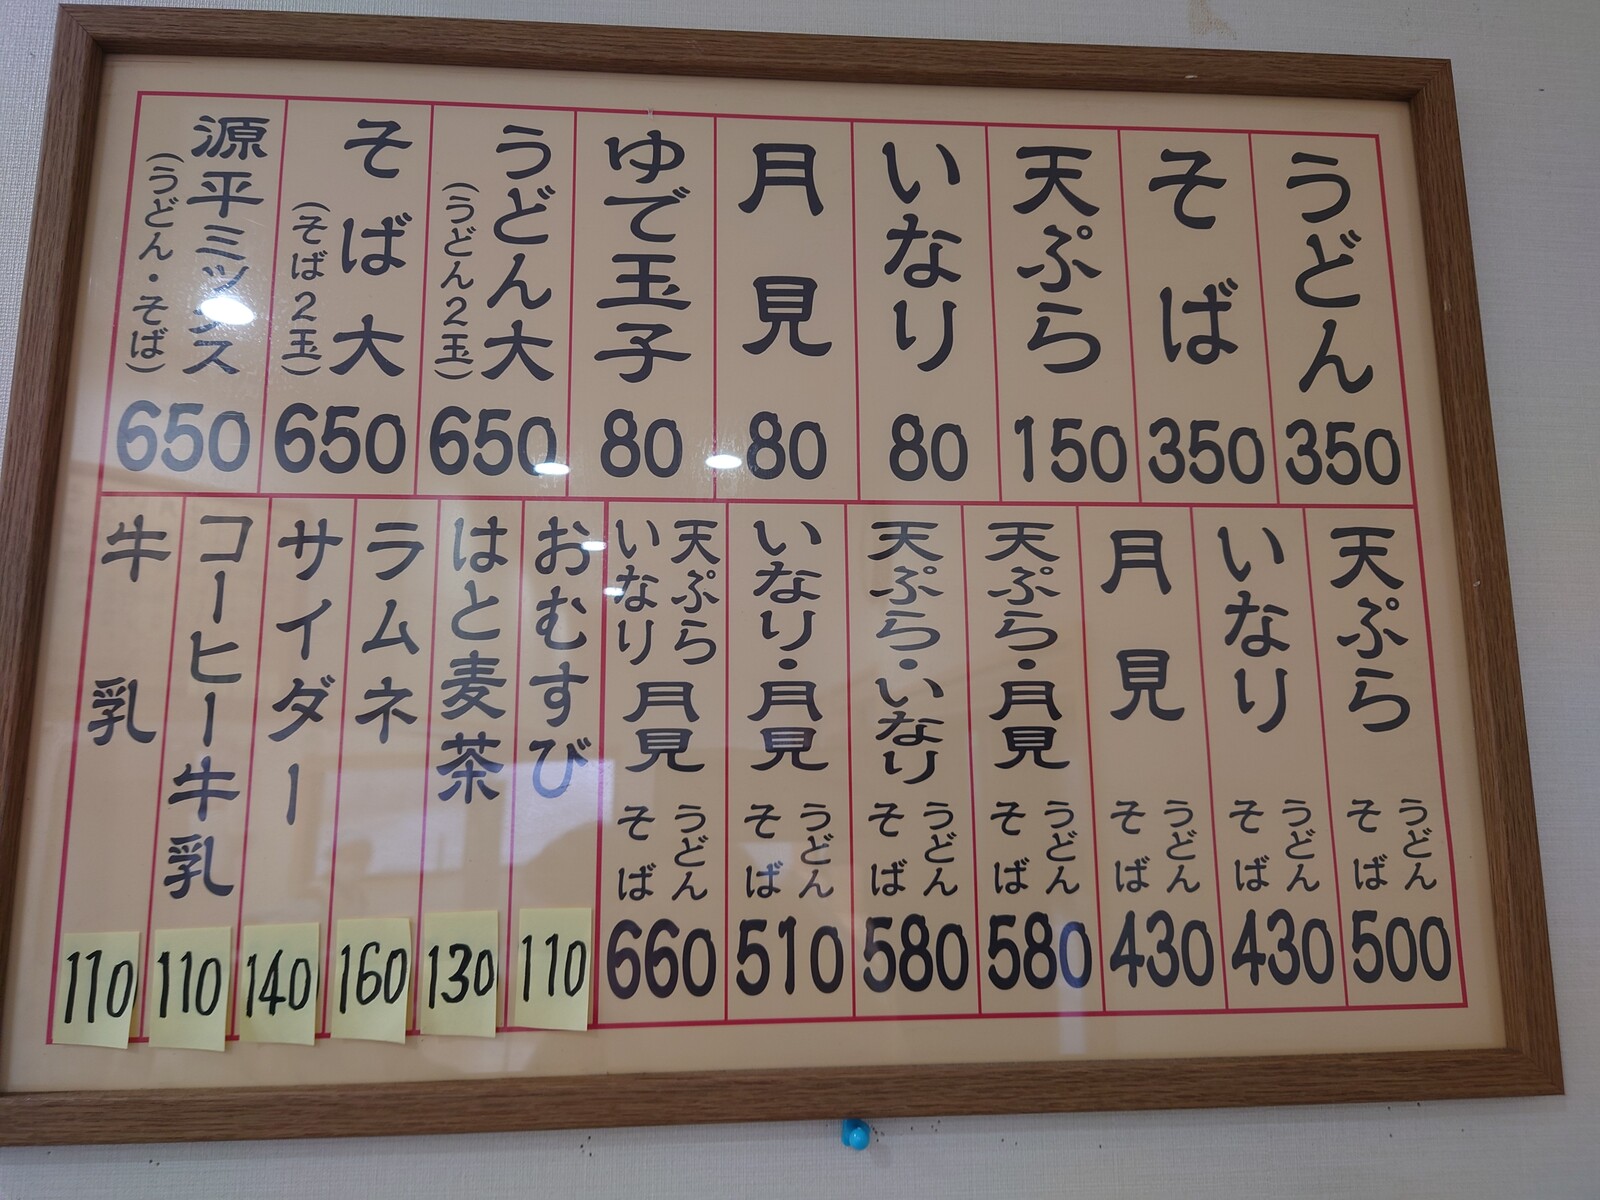 うどん
350
そば
350
天ぷら
150
いなり
80
月見
80
ゆで玉子
80
うどん大
(うどん2玉)
650
そば大
(そば2玉)
650
源平ミックス
(うどん・そば)
650
天ぷら
うどん
そば
500
いなり
うどん
そば
430
月見
うどん
そば
430
天ぷら・月見
うどん
そば
580
天ぷら・いなり
うどん
そば
580
いなり・月見
うどん
そば
510
天ぷら
いなり
月見
うどん
そば
660
おむすび
110
はと麦茶
130
ラムネ
160
サイダー
140
コーヒー牛乳
110
牛乳
110